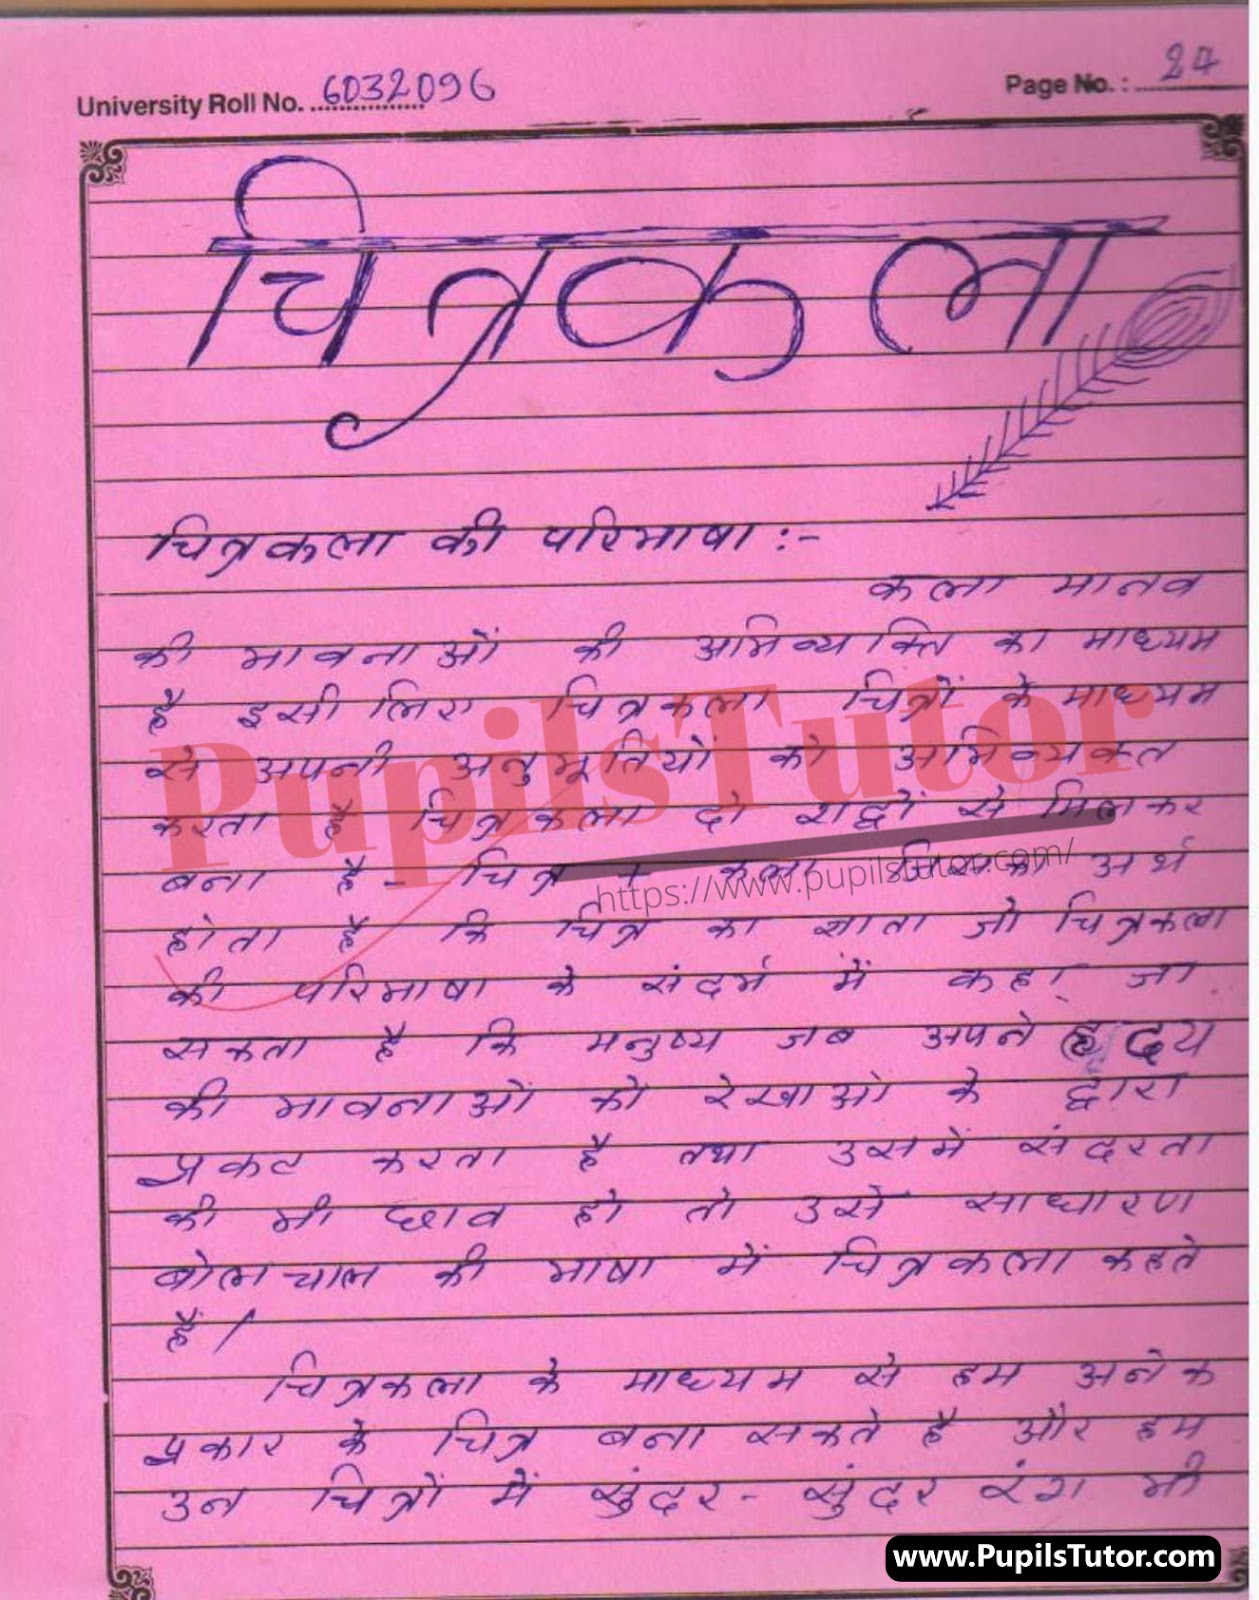 University Roll No. 6032096
Page No.: 24
चित्रकला
चित्रकला की परिभाषा :-
कला मानव
की भावनाओं की अभिव्यक्ति का माध्यम
है इसीलिए चित्रकला चित्रों के माध्यम
से अपनी अनुभूतियों को अभिव्यक्त
करता है चित्रकला दो शब्दों से मिलकर
बना है - चित्र + कला जिसका अर्थ
होता है कि चित्र का ज्ञाता जो चित्रकला
की परिभाषा के संदर्भ में कहा जा
सकता है कि मनुष्य जब अपने हृदय
की भावनाओं को रेखाओ के द्वारा
प्रकट करता है तथा उसमें संदरता
की भी छाव हो तो उसे साधारण
बोलचाल की भाषा में चित्रकला कहते
हैं /
चित्रकला के माध्यम से हम अनेक
प्रकार के चित्र बना सकते है और हम
उन चित्रों में सुंदर - सुंदर रंग भी
PupilsTutor
https://www.pupilstutor.com/
www.PupilsTutor.com